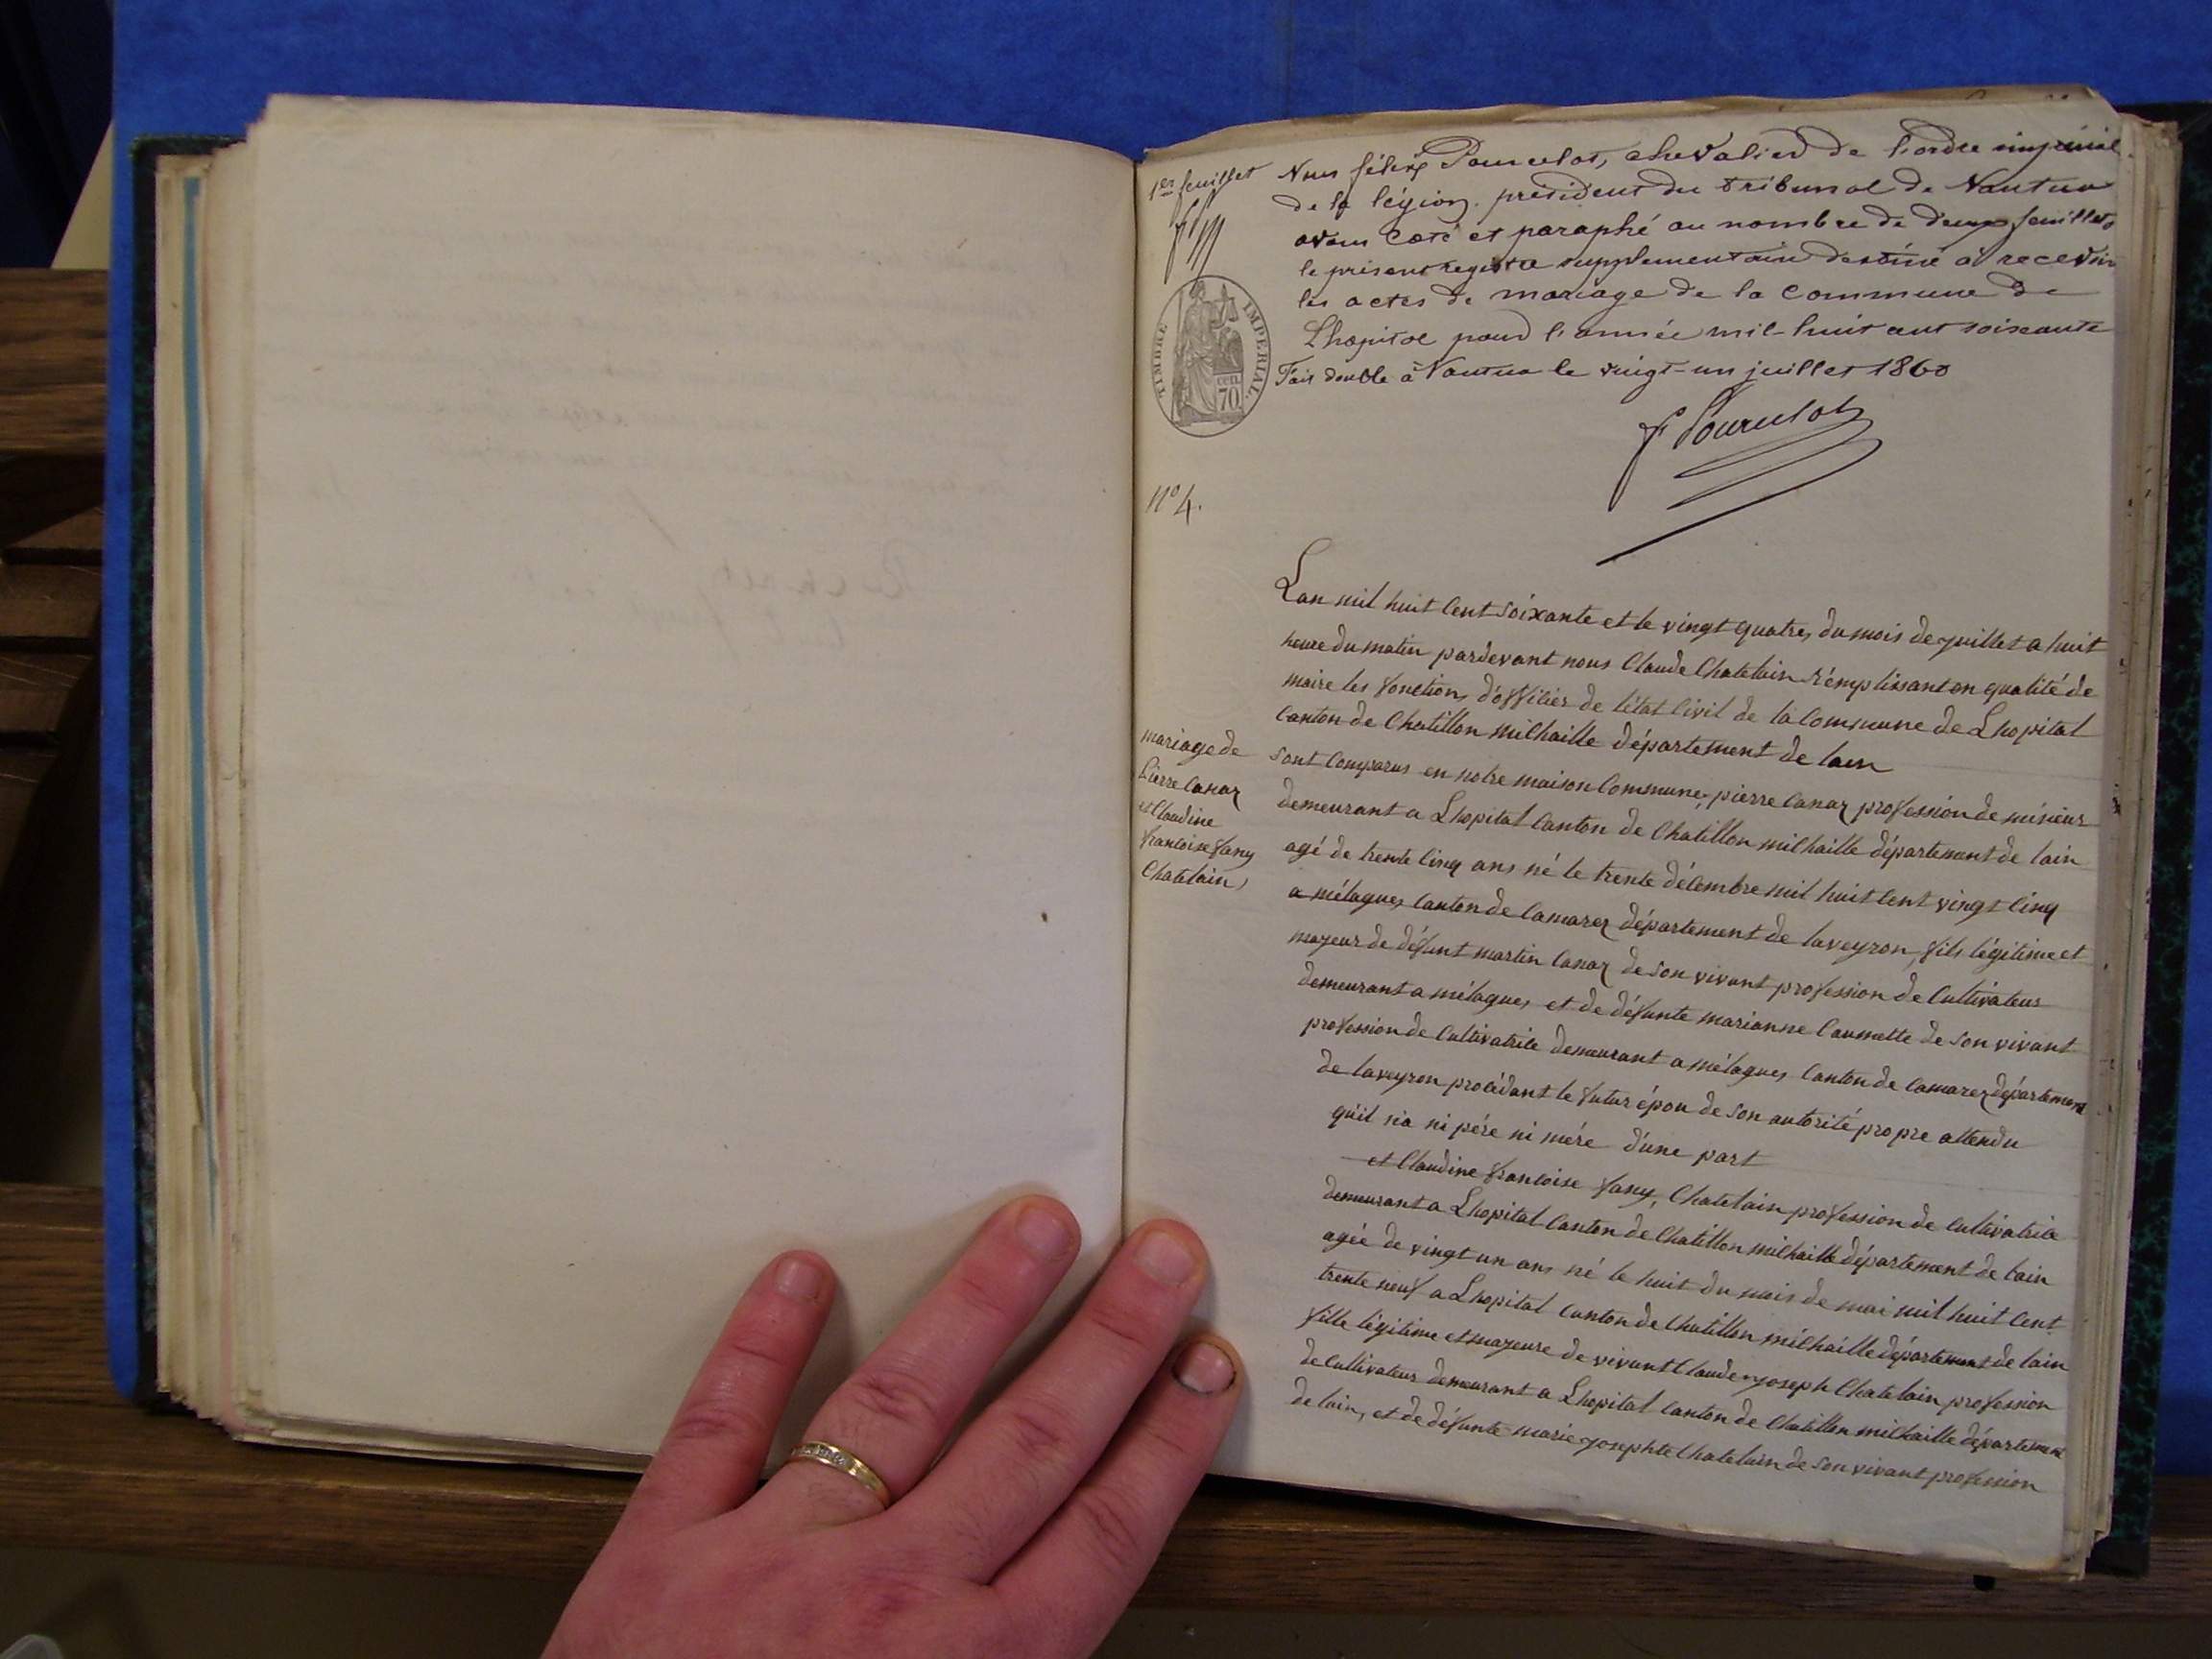 1er feuillet
Nous félix Pourcelot, chevalier de l'ordre impérial
de la légion. président du tribunal de Nantua
avons coté et paraphé au nombre de deux feuillets
le présent registre supplémentaire destiné à recevoir
les actes de mariage de la commune de
Lhopital pour l'année mil-huit cent soixante
Fait double à Nantua le vingt-un juillet 1860
TIMBRE IMPERIAL
cen. 70
F Pourcelot
N° 4.
Lan mil huit Cent Soixante et le vingt quatres, du mois de juillet a huit
heure du matin pardevant nous Claude Chatelain Rémplissant en qualité de
maire les fonction, d'officiér de l'état Civil de la Commune de Lhopital
Canton de Chatillon milhaille département de lain
mariage de
Pierre Canaz
et Claudine
francoise fany
Chatelain
Sont Comparus en notre maison Commune, pierre Canaz profession de mineur
demeurant a Lhopital Canton de Chatillon milhaille département de lain
agé de trente Cinq ans né le trente décembre mil huit Cent vingt Cinq
a mélagues Canton de Camarez département de laveyron, fils légitime et
mageur de défunt martin Canaz de Son vivant profession de Cultivateur
demeurant a mélagues et de défunte marianne Caumette de Son vivant
profession de Cultivatrice demeurant a mélagues Canton de Camarez département
de laveyron procédant le futur épou de Son autorité propre attendu
qu'il n'a ni pére ni mére d'une part
et Claudine francoise fany, Chatelain profession de Cultivatrice
demeurant a Lhopital Canton de Chatillon milhaille département de lain
agée de vingt un ans né le huit du mois de mai mil huit Cent
trente neuf a Lhopital Canton de Chatillon milhaille département de lain
fille légitime et mageure de vivant Claude-joseph Chatelain profession
de Cultivateur demeurant a Lhopital Canton de Chatillon milhaille département
de lain, et de défunte marie-josephte Chatelain de Son vivant profession